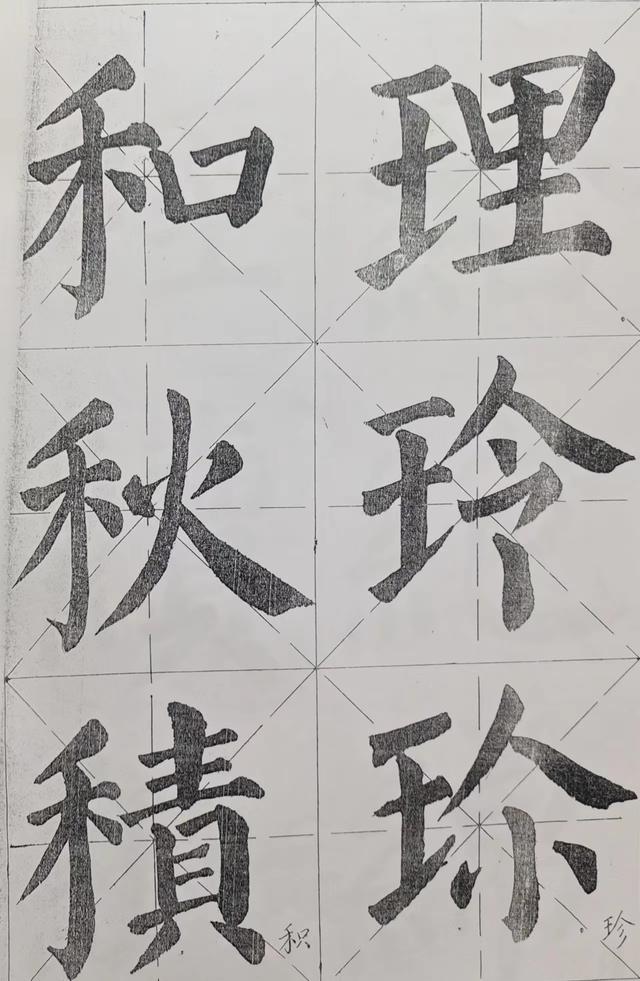 理玲珎
珍
和秋積
积